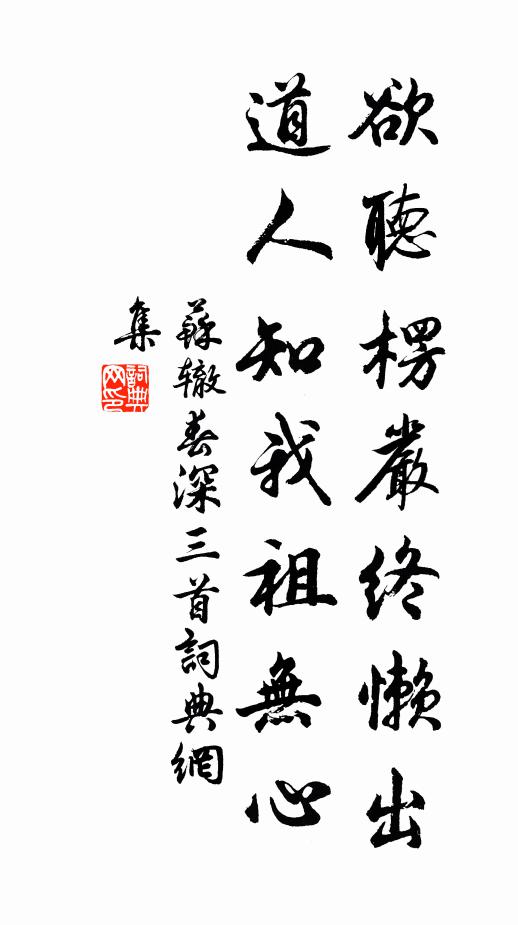 欲聽楞嚴終懶出
道人知我祖無心
蘇轍春深三首詞典網
集
詞典
网印